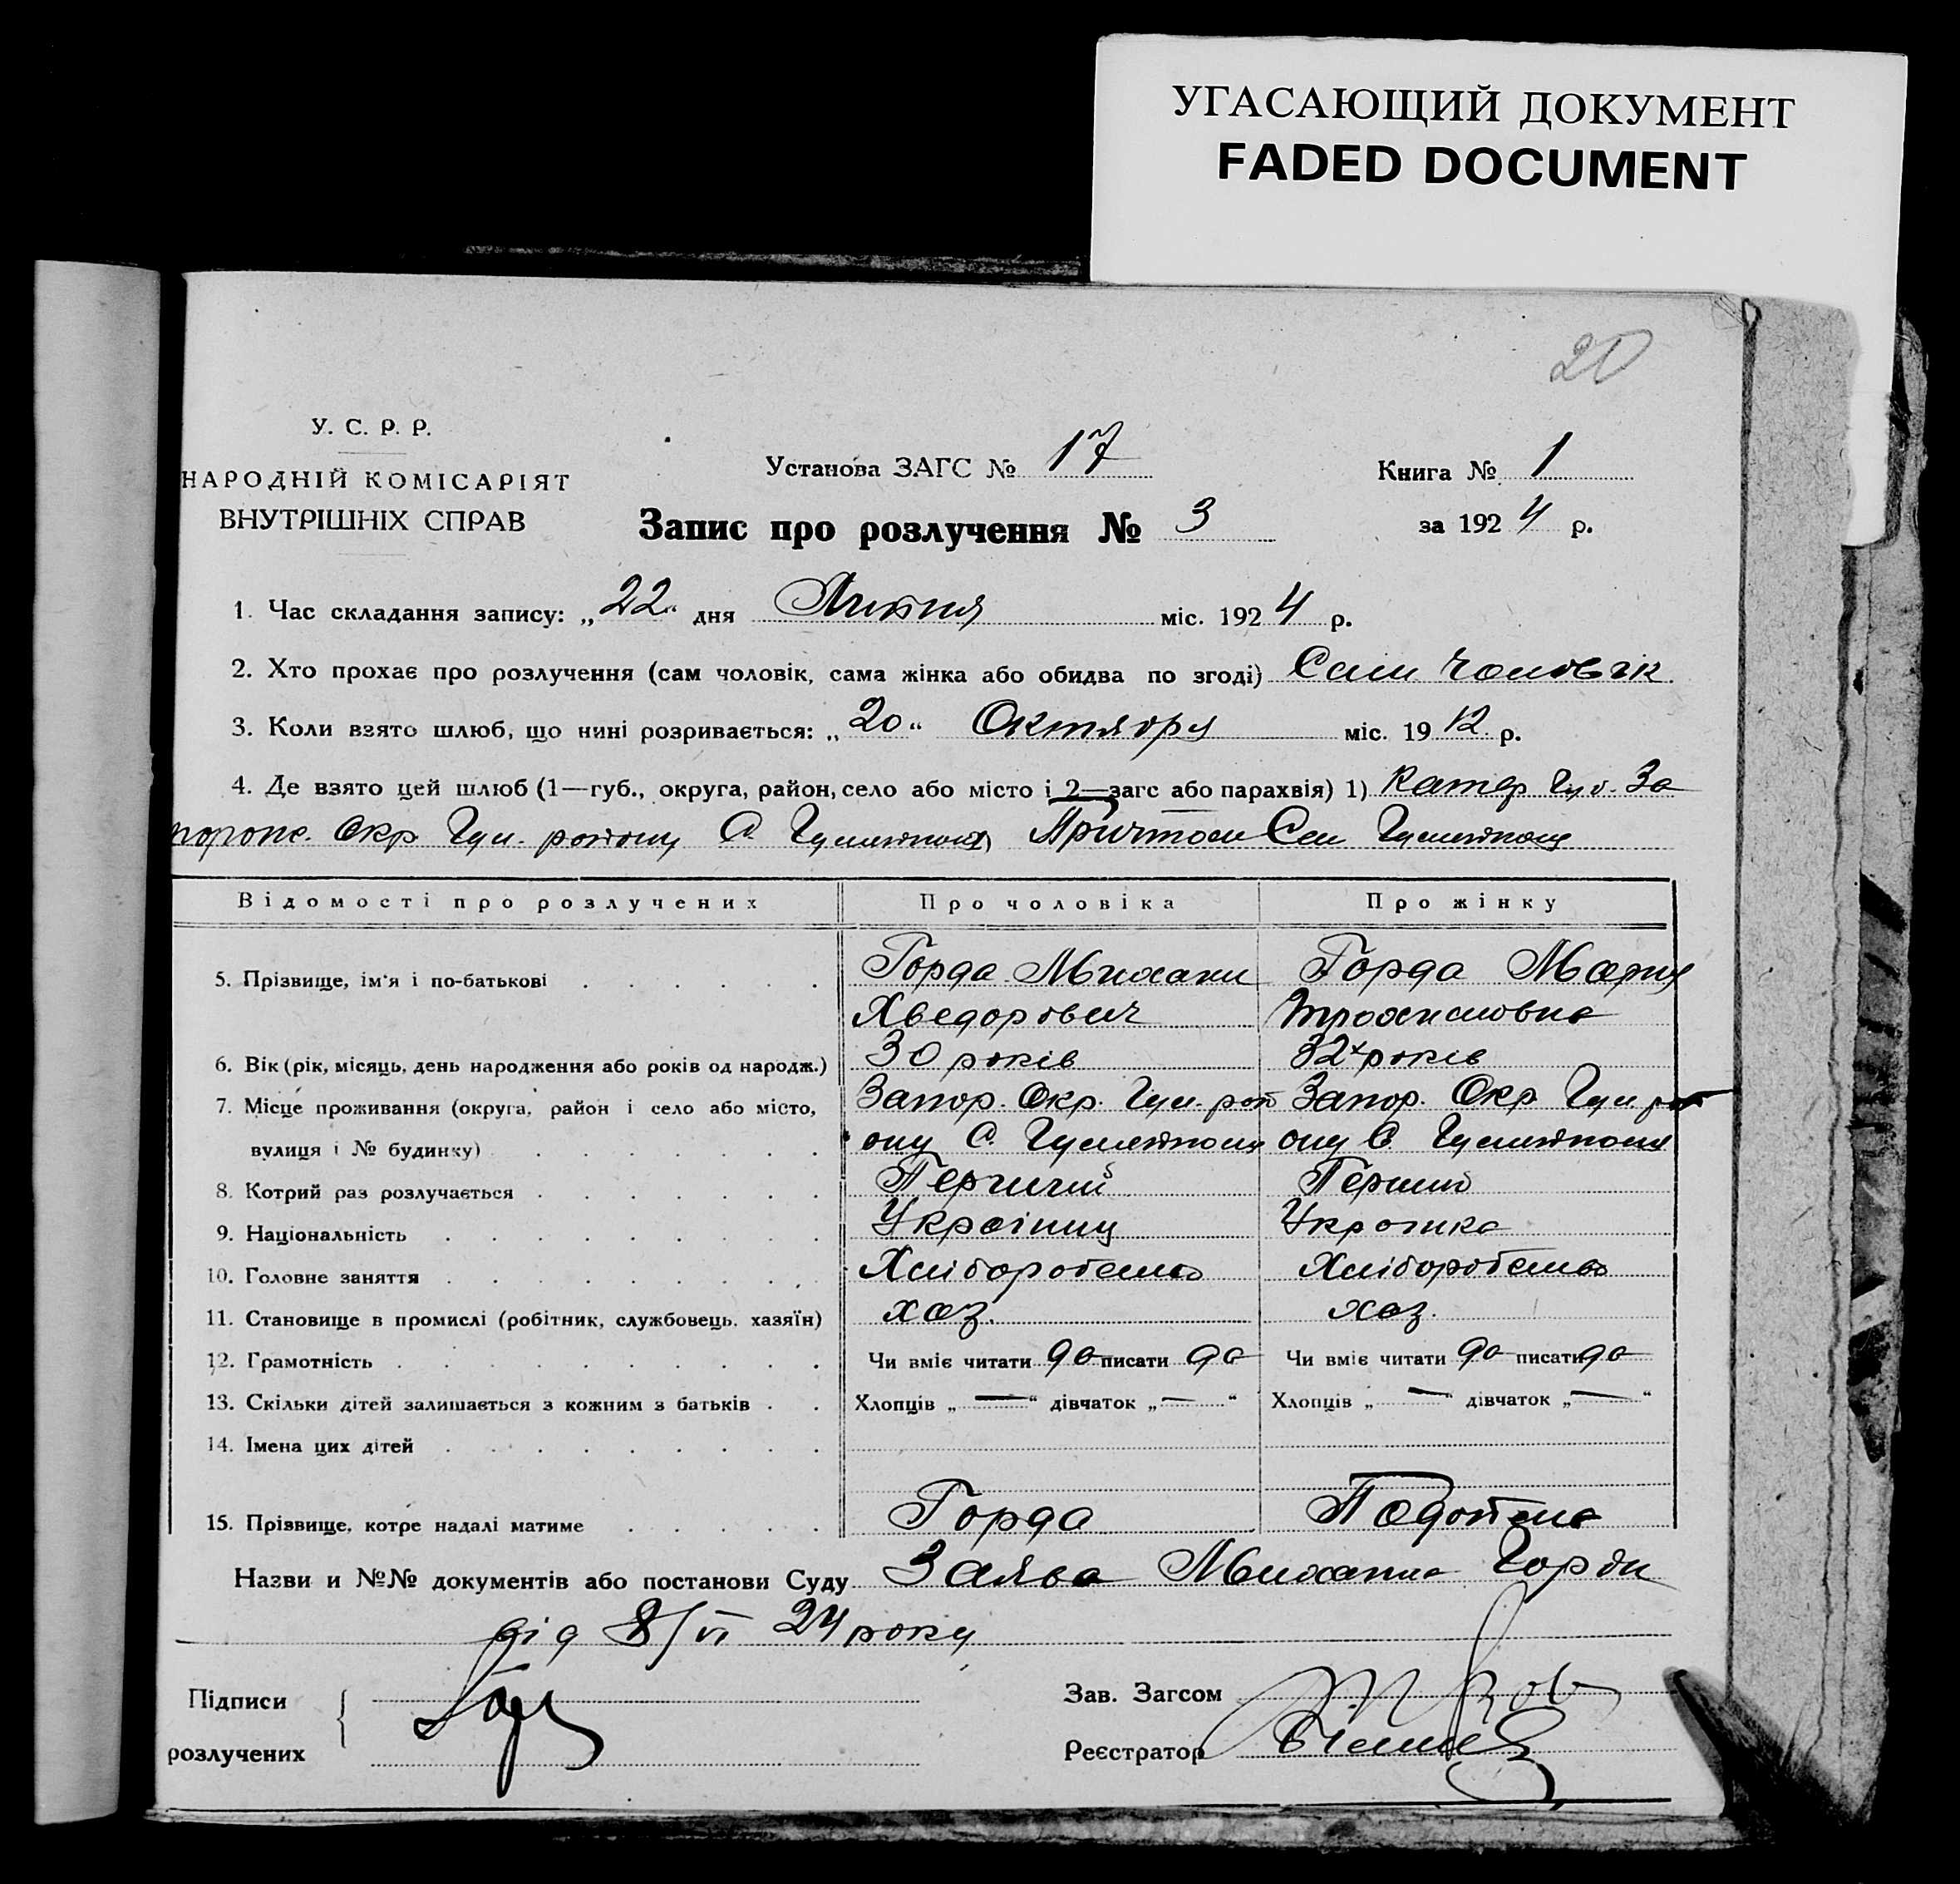 УГАСАЮЩИЙ ДОКУМЕНТ
FADED DOCUMENT
20
У. С. Р. Р.
НАРОДНІЙ КОМІСАРІЯТ
ВНУТРІШНІХ СПРАВ
Установа ЗАГС № 17
Книга № 1
Запис про розлучення № 3
за 1924 р.
1. Час складання запису: „22“ дня Липня міс. 1924 р.
2. Хто прохає про розлучення (сам чоловік, сама жінка або обидва по згоді) Сам чоловік
3. Коли взято шлюб, що нині розривається: „20“ Октября міс. 1912 р.
4. Де взято цей шлюб (1—губ., округа, район, село або місто і 2—загс або парахвія) 1) Катер. Губ. За
порож. Окр Гул. району С. Гуляйполя 2) Причтом Сел Гуляйполя
Відомості про розлучених Про чоловіка Про жінку
5. Прізвище, ім'я і по-батькові Горда Михаил Горда Мария
Хведорович Трохимовна
6. Вік (рік, місяць, день народження або років од народж.) 30 років 32 років
7. Місце проживання (округа, район і село або місто, Запор. Окр. Гул. рай Запор. Окр Гул. рай
вулиця і № будинку) ону С. Гуляйполя ону С. Гуляйполя
8. Котрий раз розлучається Перший Перший
9. Національність Українец Українка
10. Головне заняття Хліборобство Хліборобство
11. Становище в промислі (робітник, службовець, хазяїн) хаз. хаз.
12. Грамотність Чи вміє читати да писати да Чи вміє читати да писати да
13. Скільки дітей залишається з кожним з батьків Хлопців „—“ дівчаток „—“ Хлопців „—“ дівчаток „—“
14. Імена цих дітей
15. Прізвище, котре надалі матиме Горда
Назви и №№ документів або постанови Суду Заява Михаила Горди
від 8/VI 24 року
Підписи
розлучених
Зав. Загсом
Реєстратор